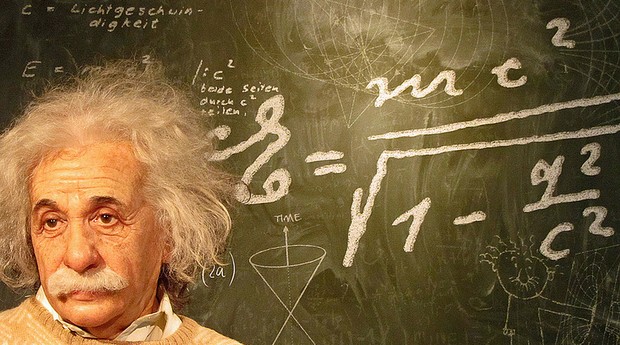 c = Lichtgeschwin-
digkeit
E = m
/: c²
beide Seiten
durch c²
teilen.
ℰ = mc² / √(1 - q²/c²)
TIME
(2a)